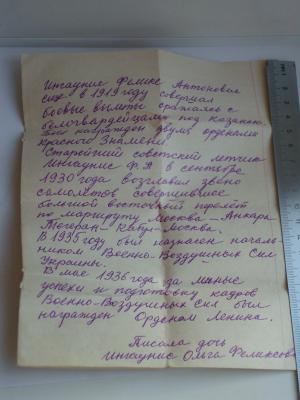 Ингаунис Феликс Антонович
еще в 1919 году совершал
боевые вылеты сражаясь с
белогвардейцами под Казанью.
Был награжден двумя орденами
Красного Знамени.
Старейший советский летчик
Ингаунис Ф.А в сентябре
1930 года возглавил звено
самолетов совершившее
большой восточный перелёт
по маршруту Москва – Анкара
Тегеран – Кабул – Москва.
В 1935 году был назначен началь-
ником Военно-Воздушных Сил
Украины.
В мае 1936 года за личные
успехи и подготовку кадров
Военно-Воздушных сил был
награжден Орденом Ленина.
Писала дочь
Ингаунис Ольга Феликсовна